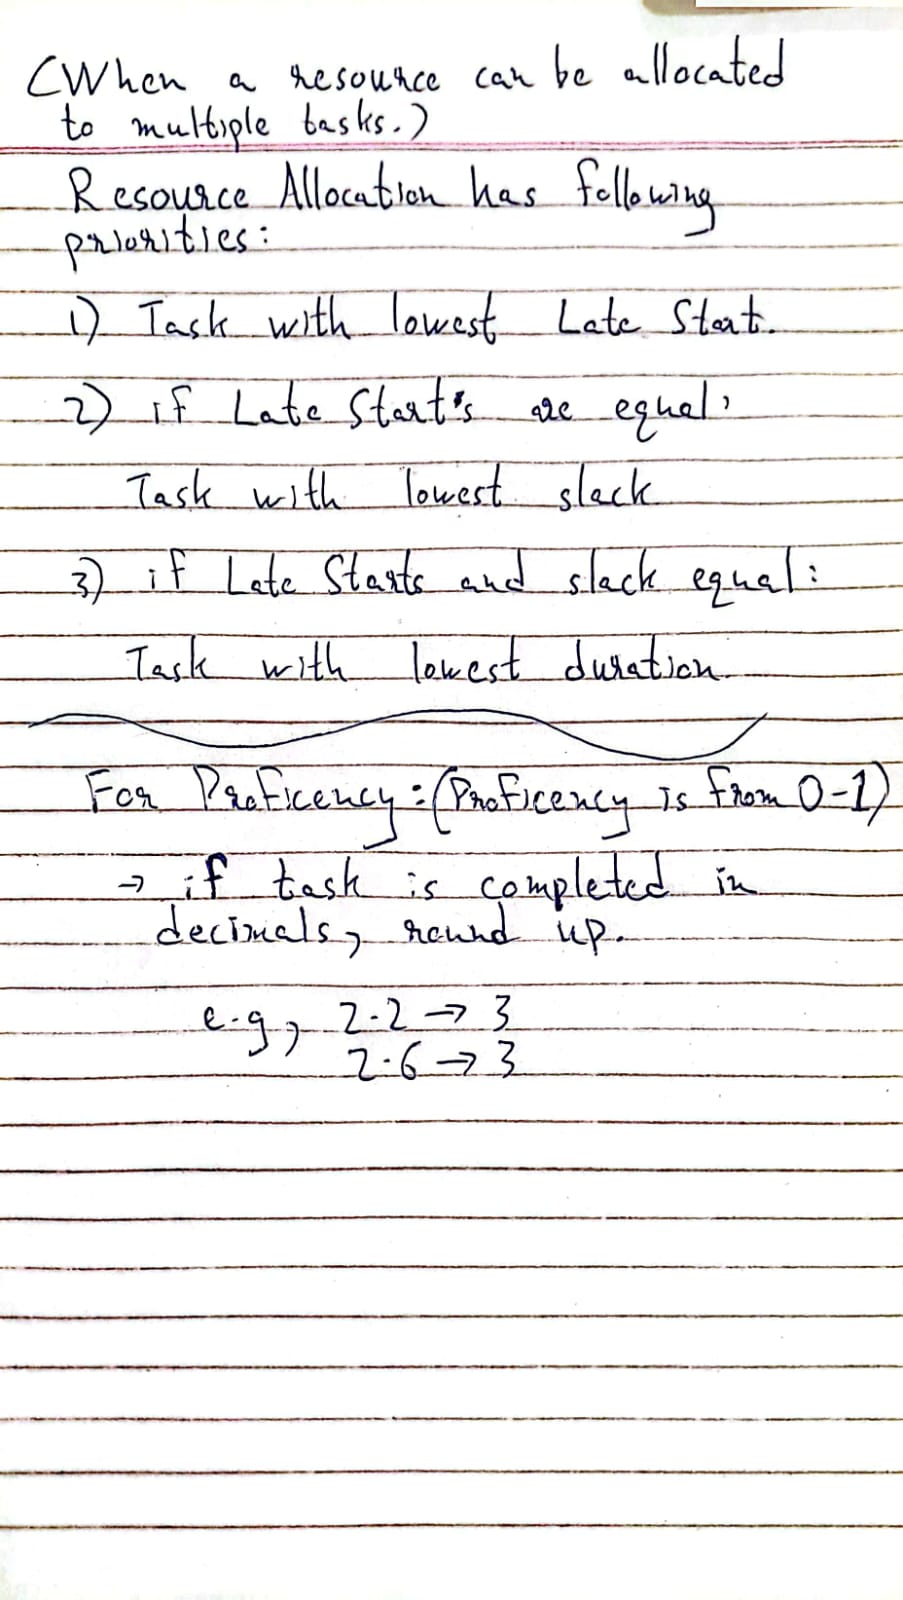 (When a resource can be allocated
to multiple tasks.)
Resource Allocation has following
priorities:
1) Task with lowest Late Start.
2) if Late Start's are equal,
Task with lowest slack
3) if Late Starts and slack equal:
Task with lowest duration.
For Proficency:(Proficency is from 0-1)
→ if task is completed in
decimals, round up.
e.g, 2.2 → 3
2.6 → 3